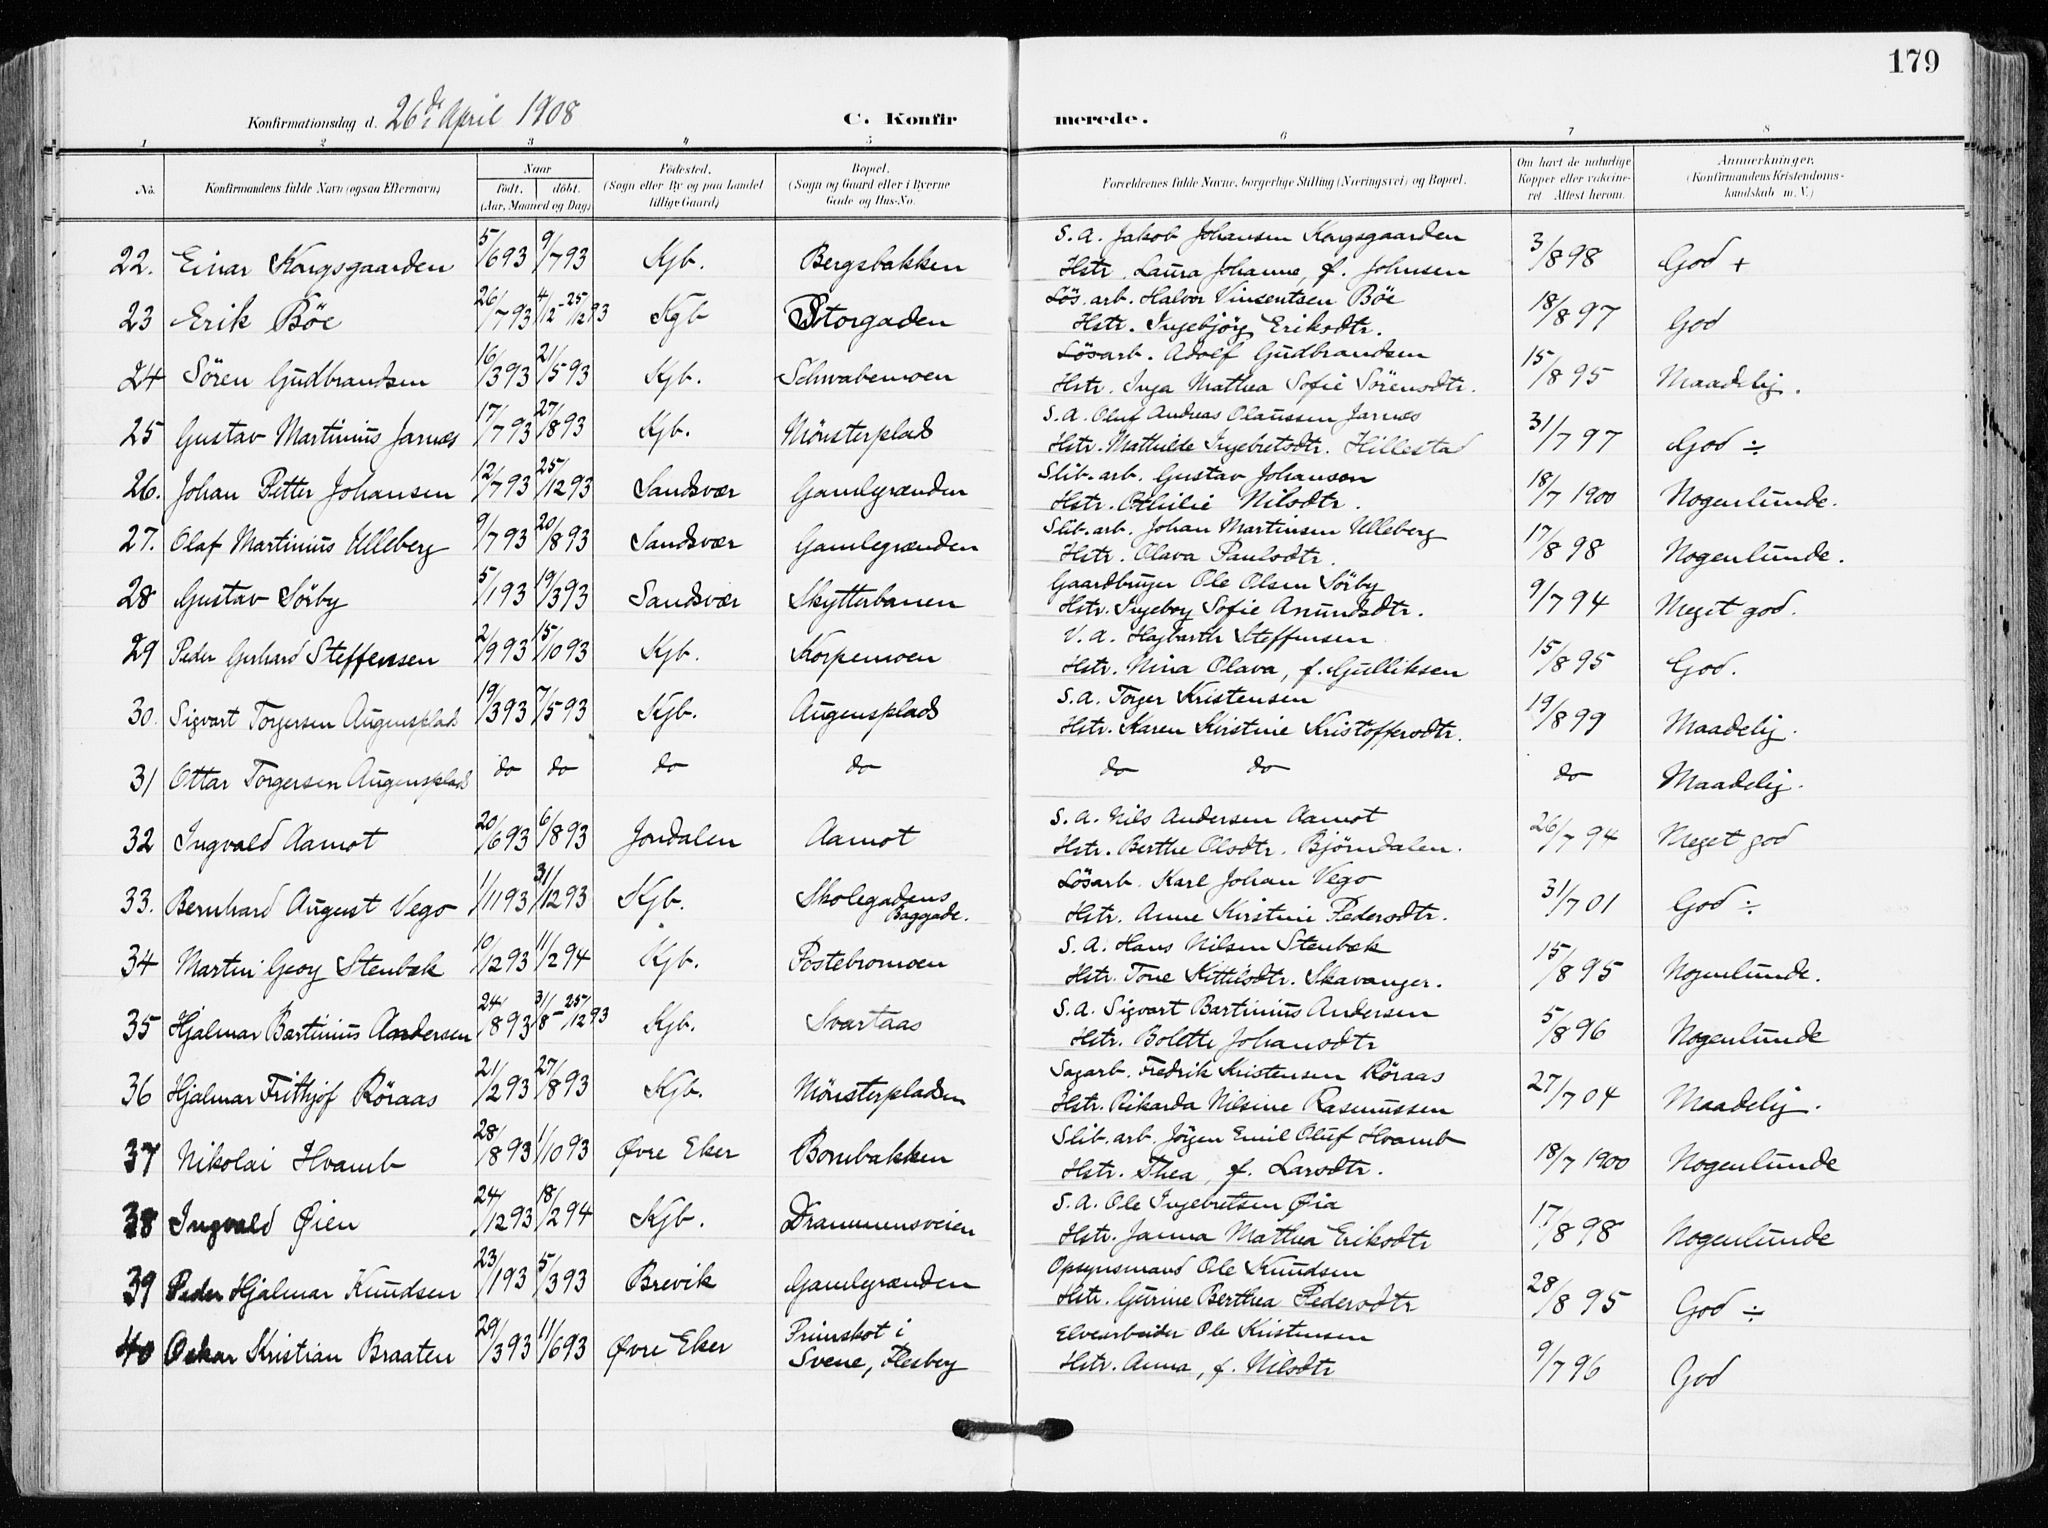 179
Konfirmationsdag d. 26de April 1908 C. Konfirmerede.
1 2 3 4 5 6 7 8
No. Konfirmandens fulde Navn (ogsaa Efternavn) Naar født. døbt. (Aar, Maaned og Dag) Fødested. (Sogn eller By og paa Landet tillige Gaard) Bopæl. (Sogn og Gaard eller i Byerne Gade og Hus-No. Forældrenes fulde Navne, borgerlige Stilling (Næringsvei) og Bopæl. Om havt de naturlige Kopper eller vakcineret Attest herom. Anmerkninger. (Konfirmandens Kristendomskundskab m. V.)
22. Einar Kongsgaarden 5/6 93 9/7 93 Kgb. Bergsbakken S. A. Jakob Johansen Kongsgaarden
Hstr. Laura Johanne, f. Johnsen 3/8 98 God +
23 Erik Böe 26/7 93 4/12 - 25/12 93 Kgb Storgaden Lös. arb. Halvor Vinsentsen Böe
Hstr. Ingebjörg Eriksdtr. 18/8 97 God
24 Sören Gudbrandsen 16/3 93 21/5 93 Kgb. Schwabemoen Lösarb. Adolf Gudbrandsen
Hstr. Inga Mathea Sofie Sörensdtr. 15/8 95 Maadelig.
25 Gustav Martinius Jarnæs 17/7 93 27/8 93 Kgb. Mönsterplads S. A. Oluf Andreas Olaussen Jarnæs
Hstr. Mathilde Ingebretsdtr. Hillestad 31/7 97 God ÷
26. Johan Petter Johansen 12/7 93 25/12 93 Sandsvær Gamlegrænden Slib. arb. Gustav Johansen
Hstr. Othilie Nilsdtr. 18/7 1900 Nogenlunde.
27. Olaf Martinius Ulleberg 9/7 93 20/8 93 Sandsvær Gamlegrænden Slib. arb. Johan Martinsen Ulleberg
Hstr. Olava Paulsdtr. 17/8 98 Nogenlunde.
28 Gustav Sörby 5/1 93 19/3 93 Sandsvær Skyttabanen Gaardbruger Ole Olsen Sörby
Hstr. Ingeborg Sofie Amundsdtr. 9/7 94 Meget god.
29 Peder Gerhard Steffensen 2/9 93 15/10 93 Kgb. Korpemoen V. A. Hagbarth Steffensen
Hstr. Nina Olava, f. Gulliksen 15/8 95 God.
30. Sigvart Torgersen Augensplads 19/3 93 7/5 93 Kgb. Augensplads S. A. Torger Kristensen
Hstr. Karen Kirstine Kristoffersdtr. 19/8 99 Maadelig.
31 Ottar Torgersen Augensplads do do do do do do do Maadelig.
32 Ingvald Aamot 20/6 93 6/8 93 Jondalen Aamot S. A. Nils Andersen Aamot
Hstr. Berthe Olsdtr. Bjørndalen. 26/7 94 Meget god
33. Bernhard August Vego 1/11 93 31/12 93 Kgb. Skolegadens Baggade. Lösarb. Karl Johan Vego
Hstr. Anne Kirstine Pedersdtr. 31/7 01 God ÷
34 Martin Georg Stenbæk 10/12 93 11/2 94 Kgb. Postebromoen S. A. Hans Nilsen Stenbæk
Hstr. Tone Kittilsdtr. Skavanger. 15/8 95 Nogenlunde.
35 Hjalmar Bertinius Andersen 24/8 93 31/8 - 25/12 93 Kgb. Svartaas S. A. Sigvart Bartinius Andersen
Hstr. Bolette Johansdtr 5/8 96 Nogenlunde
36 Hjalmar Frithjof Röraas 21/2 93 27/8 93 Kgb. Mönsterpladsen Sagarb. Fredrik Kristensen Röraas
Hstr. Rikarda Nilsine Rasmussen 27/7 04 Maadelig.
37 Nikolai Hvamb 28/8 93 1/10 93 Øvre Eker Bombakken Slib. arb. Jörgen Emil Oluf Hvamb
Hstr. Thea, f. Larsdtr. 18/7 1900 Nogenlunde
38 Ingvald Øien 24/12 93 18/2 94 Kgb. Drammensveien S. A. Ole Ingebretsen Øia
Hstr. Janna Mathea Eriksdtr 17/8 98 Nogenlunde
39 Peder Hjalmar Knudsen 23/1 93 5/3 93 Brevik Gamlegrænden Opsynsmand Ole Knudsen
Hstr. Gurine Berthea Pedersdtr 28/8 95 God ÷
40 Oskar Kristian Braaten 29/3 93 11/6 93 Øvre Eker Primskot i Svene, Flesberg Elvearbeider Ole Kristensen
Hstr. Anna, f. Nilsdtr 9/7 96 God